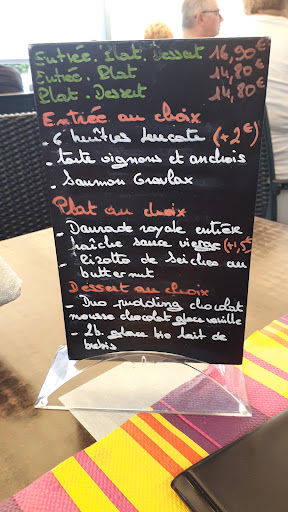 Entrée. Plat. Dessert 16,90€
Entrée. Plat 14,80€
Plat. Dessert 14,80€
Entrée au choix
- 6 huîtres leucate (+2€)
- tarte oignons et anchois
- Saumon Gravlax
Plat au choix
- Daurade royale entière
fraîche sauce vierge (+1,5€
- Rizotto de seiches au
butternut
Dessert au choix
- Duo pudding chocolat
mousse chocolat glace vanille
- 2b. glace bio lait de
brebis